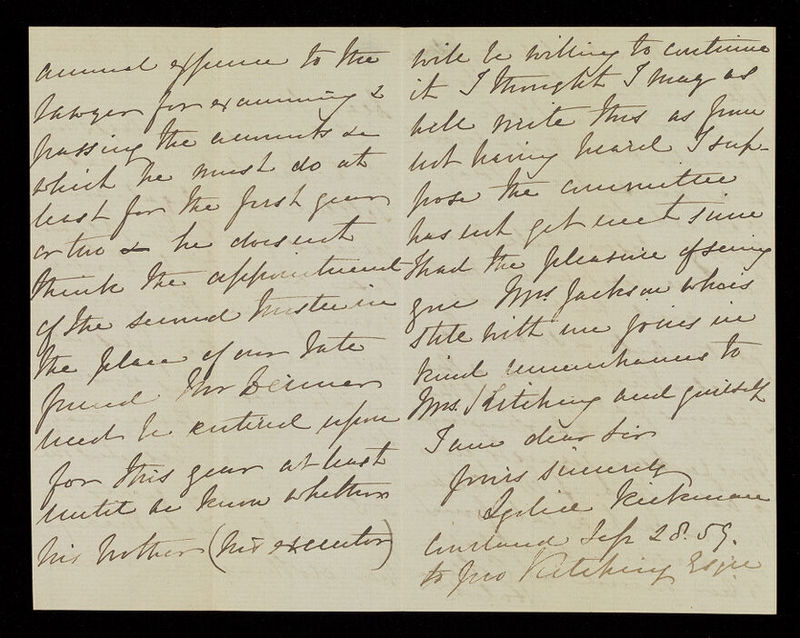 annual expense to the
lawyer for examining &
passing the accounts &
which he must do at
least for the first year
or two & he does not
think the appointment
of the second trustee in
the place of our late
friend Mr
need be entered upon
for this year at least
until we know whether
his brother (his executor)
will be willing to continue
it I thought I may as
well write this as from
not having heard I sup-
pose the committee
has not yet met since
I had the pleasure of seeing
you Mrs Jackson who is
still with me joins in
kind remembrances to
Mrs. Kitching and yourself
I am dear Sir
yours sincerely
Rickman
Sep 28. 59.
to Jno Kitching Esqre